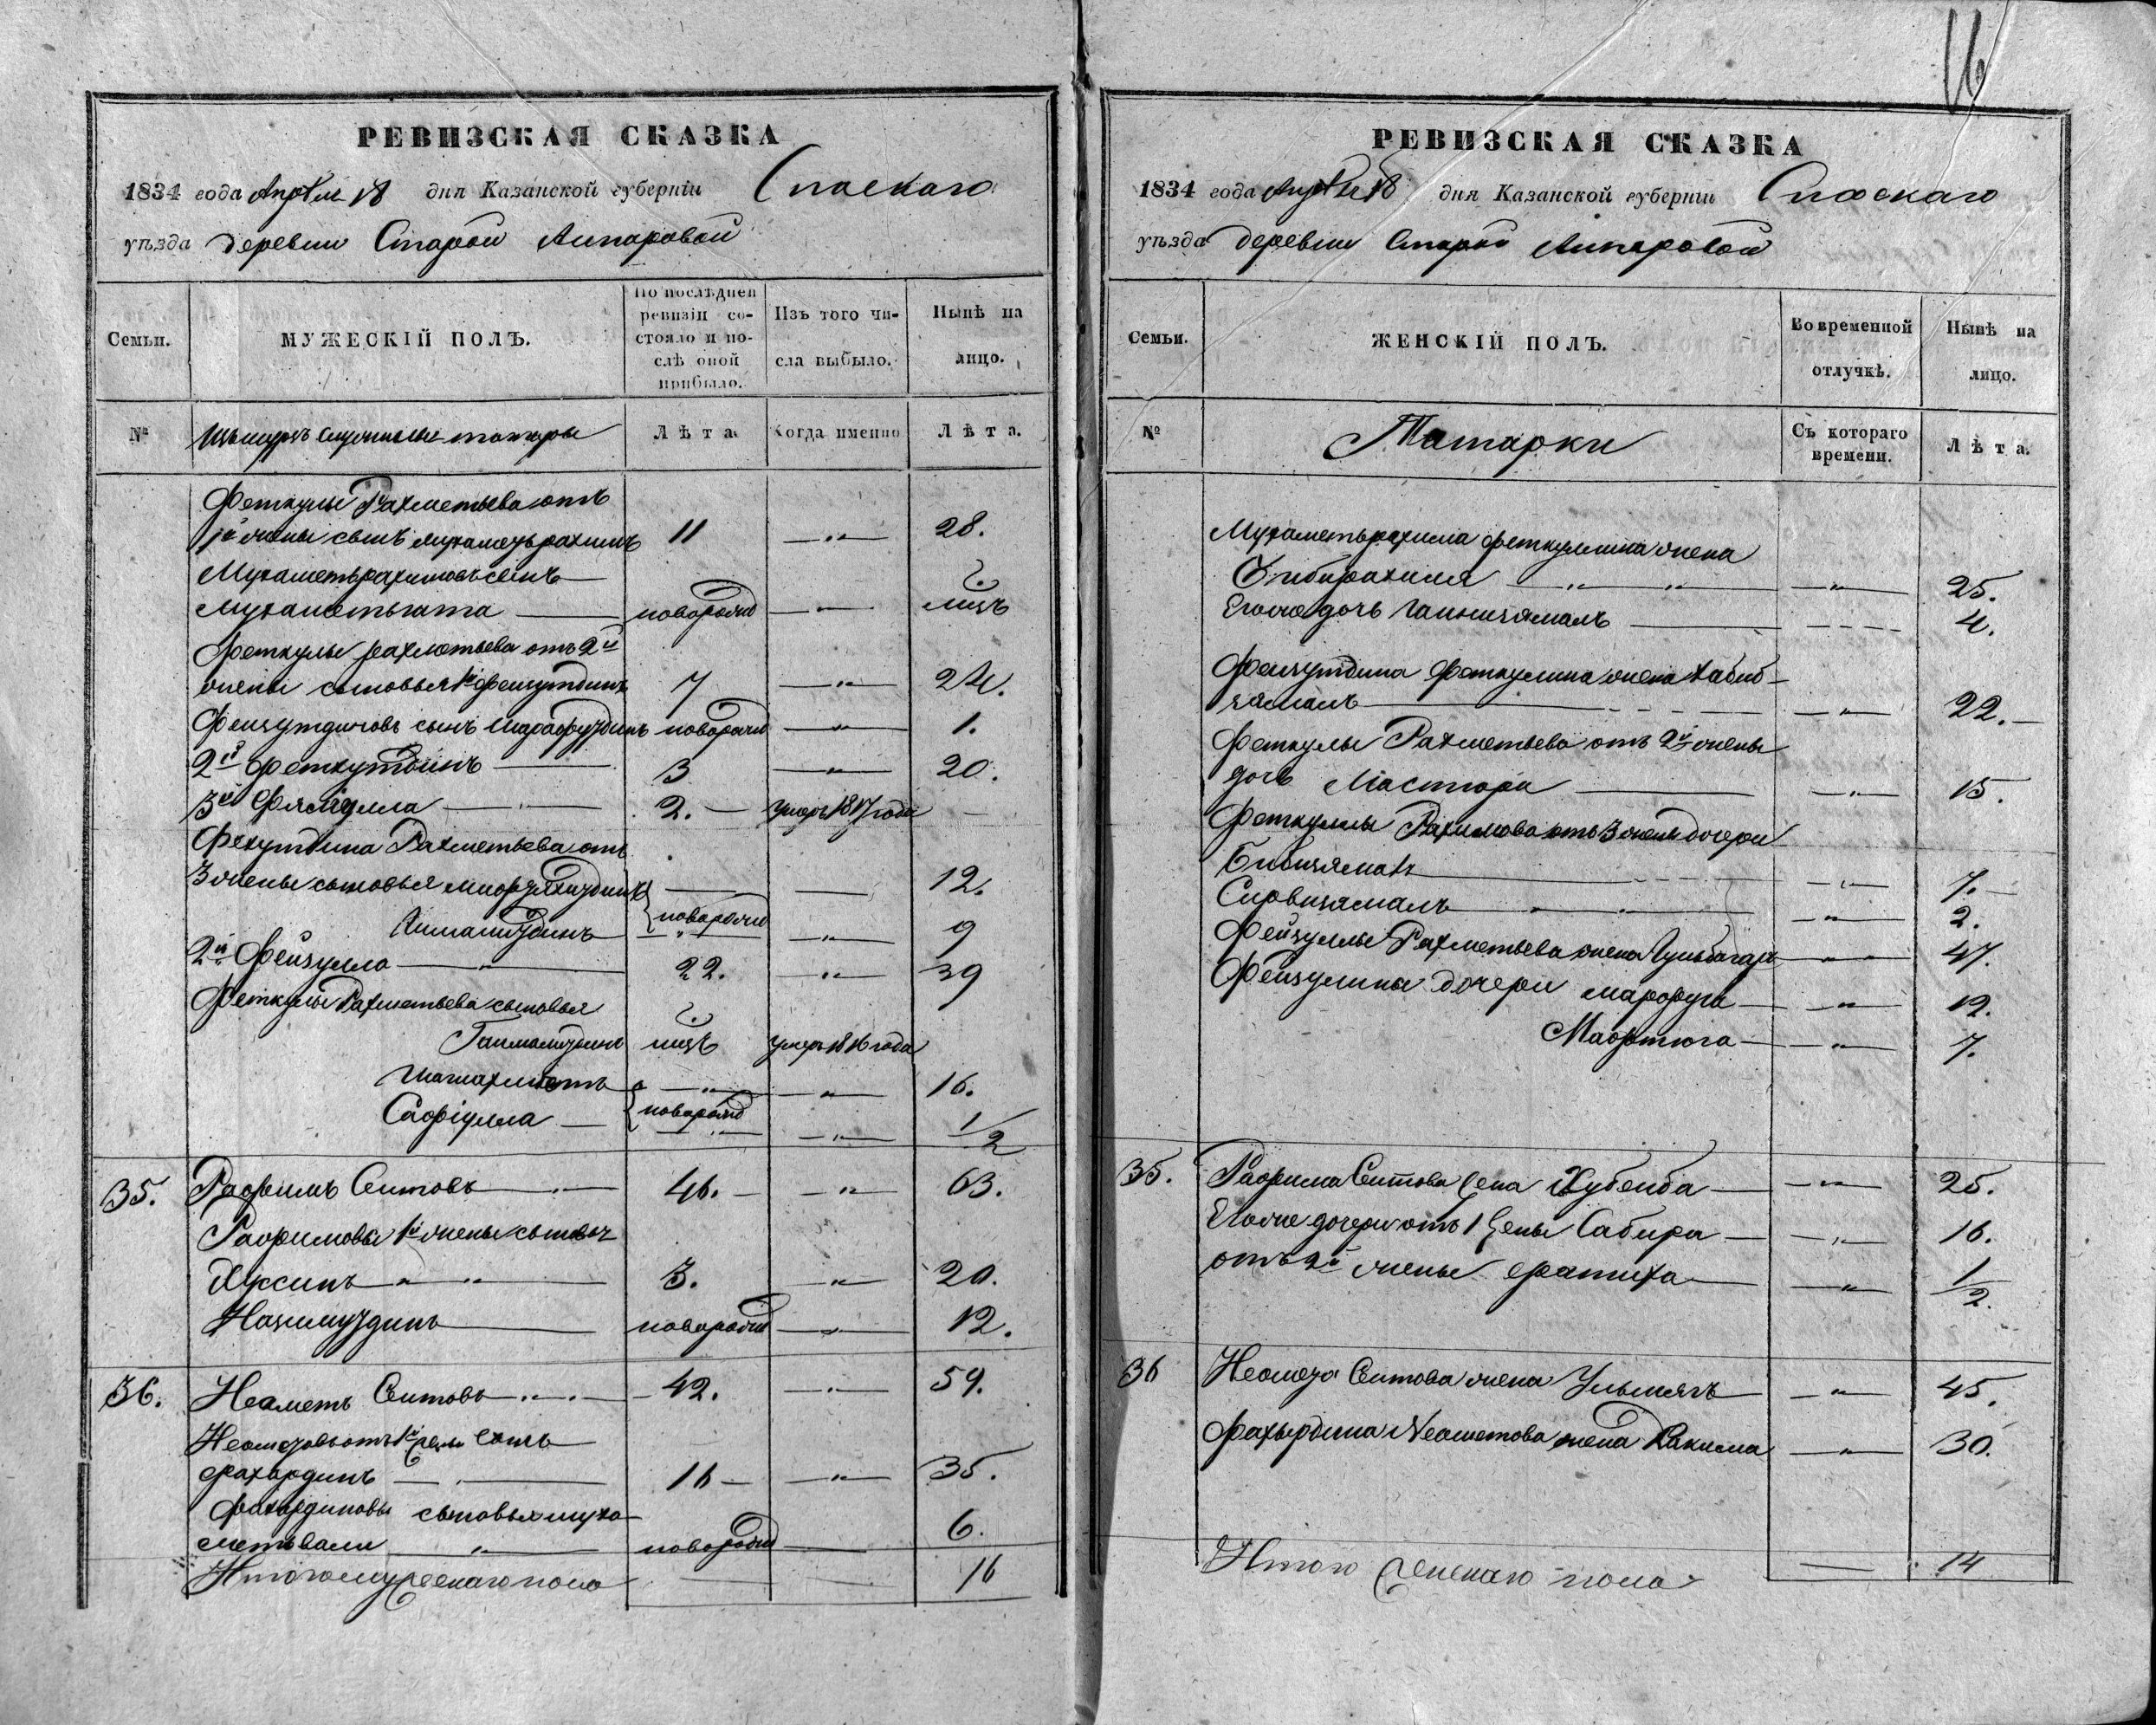 16
РЕВИЗСКАЯ СКАЗКА
1834 года Апреля 18 дня Казанской губерніи Спаскаго
уѣзда деревни Старой Алпаровой
Семьи.
МУЖЕСКІЙ ПОЛЪ.
По послѣдней ревизіи состояло и послѣ оной прибыло.
Изъ того числа выбыло.
Нынѣ на лицо.
№
служилые татары
Лѣта.
Когда именно
Лѣта.
Феткулы Рахметьева отъ
1й жены сынъ Мухаметьрахимъ 11 — " — 28.
Мухаметьрахимовъ сынъ
Мухаметьгата — новорожд — " —
Феткулы Рахметьева отъ 2й
жены сыновья 1й Фейзутдинъ 7 — " — 24.
Фейзутдиновъ сынъ Шарафутдинъ новорожд — " — 1.
2й Феткутдинъ — 3 — " — 20.
3й — " — 2. — умеръ 1817 года —
Рахметьева отъ
3 жены сыновья — — 12.
новорожд — " — 9
2й Фейзулла — " — 22. — " — 39
Феткулы Рахметьева сыновья
умеръ 1816 года
Шагиахметъ — " — — " — 16.
Сафіулла — новорожд — " — 1/2
35. Рафимъ Сеитовъ — 46. — — " — 63.
Рафимовы 1й жены сыновья
Хусинъ " — " — 3. — " — 20.
Назмутдинъ — новорожд — " — 12.
36. Неаметъ Сеитовъ — 42. — " — 59.
Неаметовъ отъ 1й жены сынъ
Фахардинъ — 16 — — " — 35.
Фахардиновы сыновья Муха-
метьвали — " — новорожд — 6.
Итого мужескаго пола — — 16
РЕВИЗСКАЯ СКАЗКА
1834 года Апреля 18 дня Казанской губерніи Спаскаго
уѣзда деревни Старой Алпаровой
Семьи.
ЖЕНСКІЙ ПОЛЪ.
Во временной отлучкѣ.
Нынѣ на лицо.
№
Татарки
Съ котораго времени.
Лѣта.
Мухаметьрахима Феткулина жена
Бибирахиля — " — " — " — 25.
Его же дочь — 4.
Фейзутдина Феткулина жена Хабиб-
замалъ — " — 22. —
Феткулы Рахметьева отъ 2й жены
дочь Мастюра — " — 15.
Феткулы Рахимова отъ 3 жены дочери
Бибизямалъ — " — 7. —
— " — " — 2.
Фейзуллы Рахметьева жена Гульбагаръ — " — 47.
Фейзулины дочери Марфуга — " — 12.
Мафтюга — " — 7.
35. Рафима Сеитова жена Хубейба — " — 25.
Его же дочери отъ 1 жены Сабира — " — 16.
отъ 2й жены Фатиха — " — 1/2.
36 Неомета Сеитова жена — " — 45.
Фахырдина Неометова жена Хакима — " — 30.
Итого женскаго пола — 14